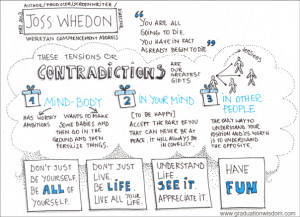 AUTHOR/PRODUCER/SCREENWRITER/
JOSS WHEDON
WESLEYAN COMMENCEMENT ADDRESS
"YOU ARE ALL
GOING TO DIE.
YOU HAVE IN FACT
ALREADY BEGUN TO DIE."
THESE TENSIONS OR
CONTRADICTIONS
ARE OUR
GREATEST
GIFTS
1 MIND-BODY
HAS WORTHY
AMBITIONS
WANTS TO MAKE
SOME BABIES AND
THEN GO IN THE
GROUND AND THEN
FERTILIZE THINGS.
2 IN YOUR MIND
[TO BE HAPPY]
ACCEPT THE PART OF YOU
THAT CAN NEVER BE AT
PEACE. IT WILL ALWAYS BE
IN CONFLICT.
3 IN OTHER
PEOPLE
THE ONLY WAY TO
UNDERSTAND YOUR
POSITION AND ITS WORTH
IS TO UNDERSTAND
THE OPPOSITE.
DON'T JUST
BE YOURSELF.
BE ALL OF
YOURSELF.
DON'T JUST
LIVE.
BE LIFE
LIVE ALL YOUR
LIFE.
UNDERSTAND
LIFE.
SEE IT.
APPRECIATE IT.
HAVE
FUN
www.graduationwisdom.com